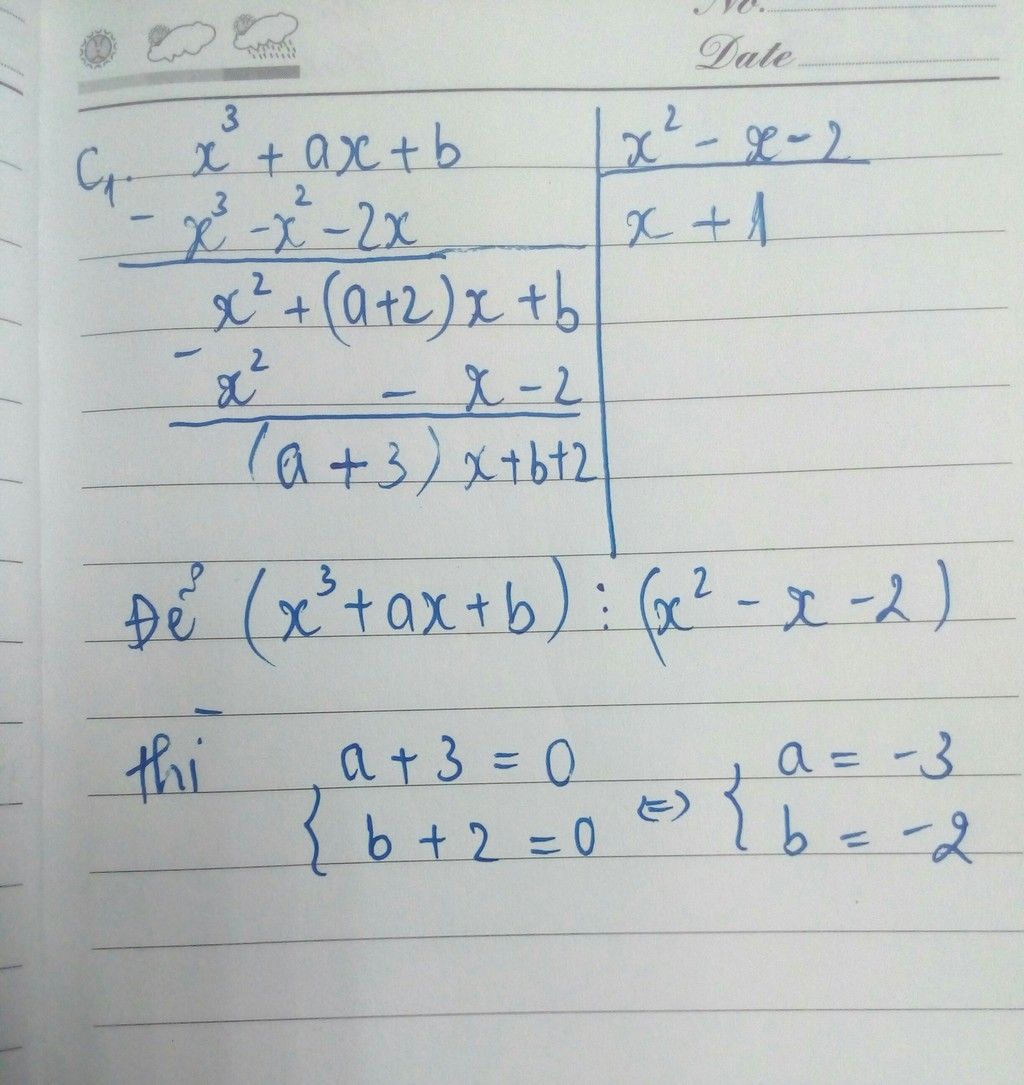 No.
Date
C₁. x³ + ax + b | x² - x - 2
- x³ - x² - 2x | x + 1
x² + (a+2)x + b
- x² - x - 2
(a + 3) x + b + 2
Để (x³ + ax + b) ⋮ (x² - x - 2)
thì { a + 3 = 0 ⇔ { a = -3
b + 2 = 0 b = -2